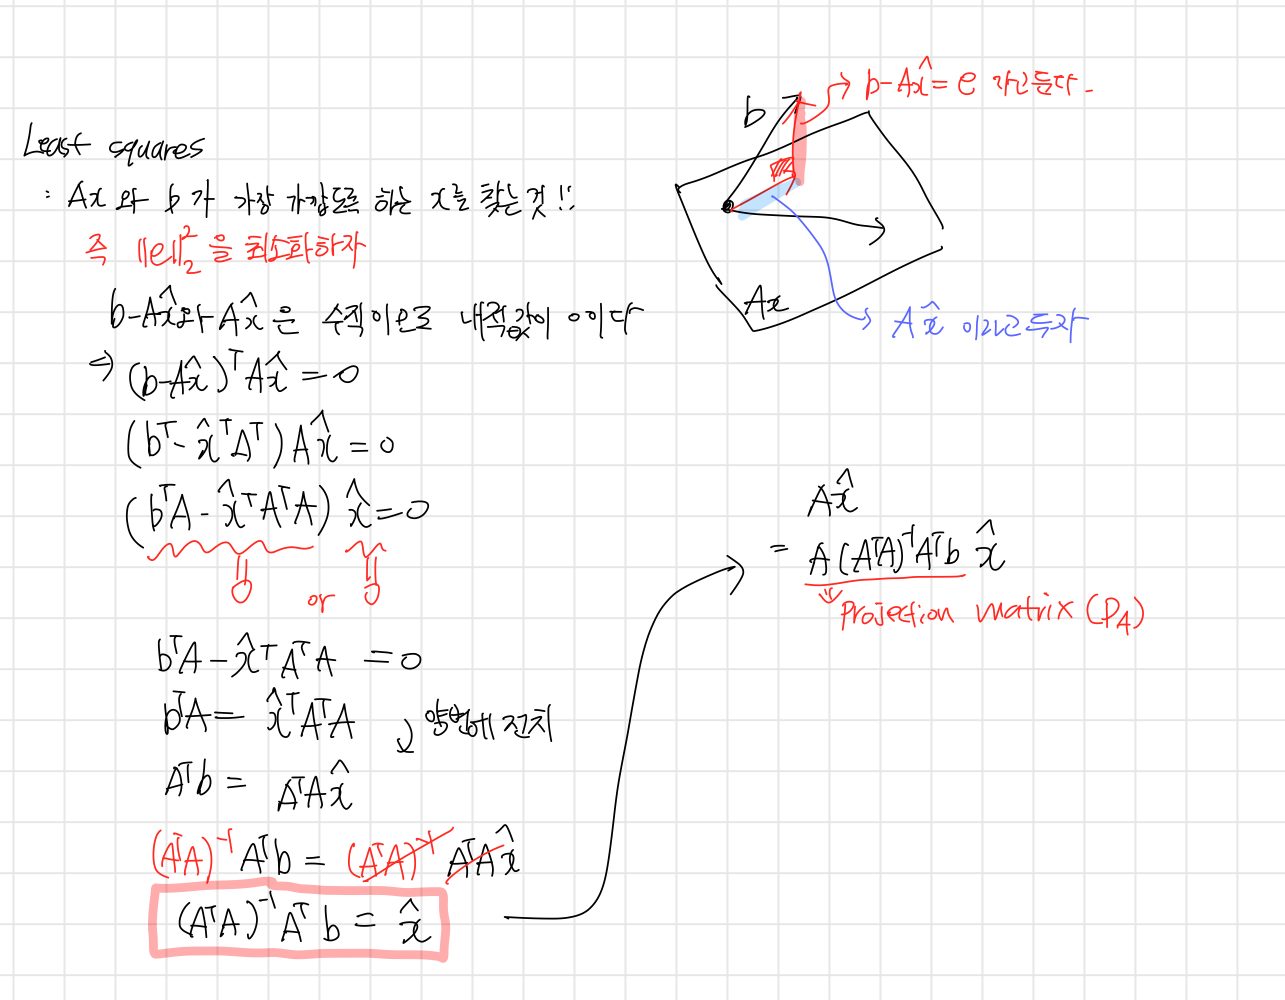 Least squares
: Ax 와 b가 가장 가깝도록 하는 x를 찾는것!!
즉 ||e||₂² 을 최소화하자
b-Ax̂와 Ax̂은 수직이므로 내적값이 0이다
⇒ (b-Ax̂)ᵀAx̂ = 0
(bᵀ-x̂ᵀAᵀ)Ax̂ = 0
(bᵀA-x̂ᵀAᵀA) x̂ = 0
0 or 0
bᵀA-x̂ᵀAᵀA = 0
bᵀA = x̂ᵀAᵀA
양변에 전치
Aᵀb = AᵀAx̂
(AᵀA)⁻¹Aᵀb = (AᵀA)⁻¹AᵀAx̂
(AᵀA)⁻¹Aᵀb = x̂
b
b-Ax̂ = e 라고 둔다.
Ax
Ax̂ 이라고 두자
Ax̂
= A(AᵀA)⁻¹Aᵀb x̂
Projection matrix (P_A)